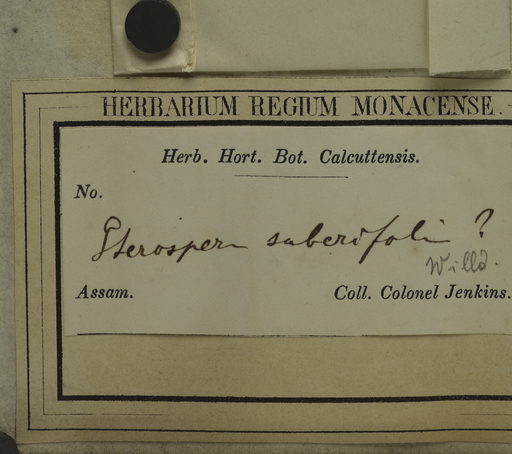 HERBARIUM REGIUM MONACENSE.
Herb. Hort. Bot. Calcuttensis.
No.
Pterosperm suberifoli ?
Willd.
Assam. Coll. Colonel Jenkins.